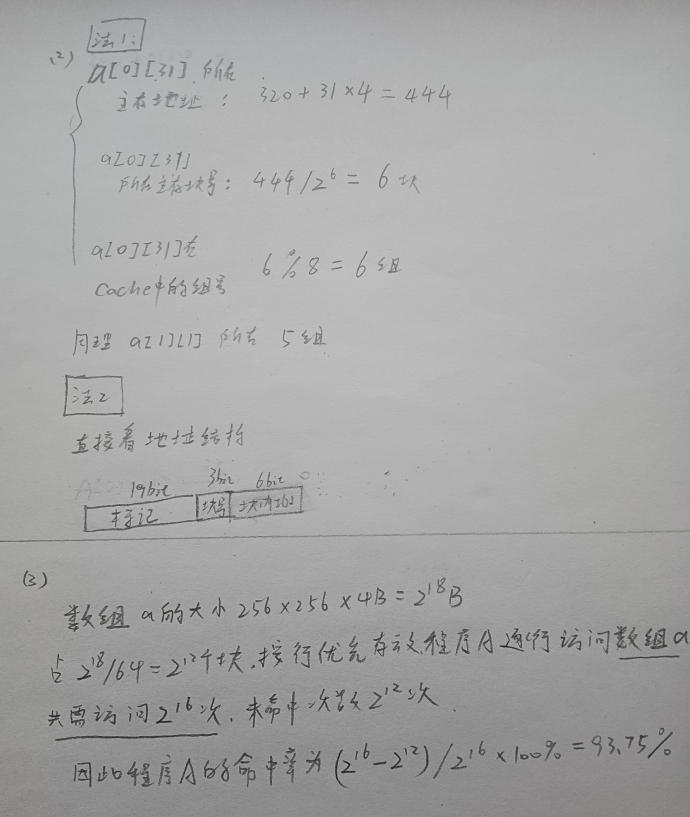 (2) 法1:
a[0][31] 所在
主存地址: 320+31×4=444
a[0][31]
所在主存块号: 444/2⁶=6块
a[0][31]在
Cache中的组号 6%8=6组
同理 a[1][1] 所在 5组
法2
直接看地址结构
19bit 3bit 6bit
标记 块号 块内地址
(3)
数组a的大小256×256×4B=2¹⁸B
占2¹⁸/64=2¹²个块,按行优先存放,程序A逐行访问数组a
共需访问2¹⁶次,未命中次数2¹²次.
因此程序A的命中率为(2¹⁶-2¹²)/2¹⁶×100%=93.75%